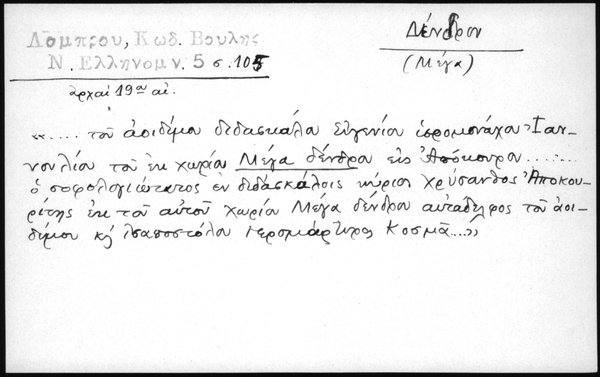 Λάμπρου, Κωδ. Βουλής
Ν. Ελληνομν. 5 σ. 105
αρχαί 19ου αι.
Δένδρον
(Μέγα)
«..... του ἀοιδίμου διδασκάλου Εὐγενίου ἱερομονάχου Ἰαν-
νουλίου τοῦ ἐκ χωρίου Μέγα δένδρου εἰς Ἀπόκουρο.......
ὁ σοφολογιώτατος ἐν διδασκάλοις κύριος Χρύσανθος Ἀποκου-
ρίτης ἐκ τοῦ αὐτοῦ χωρίου Μέγα δένδρου αὐτάδελφος τοῦ ἀοι-
δίμου κ' ἰσαποστόλου ἱερομάρτυρος Κοσμᾶ...»